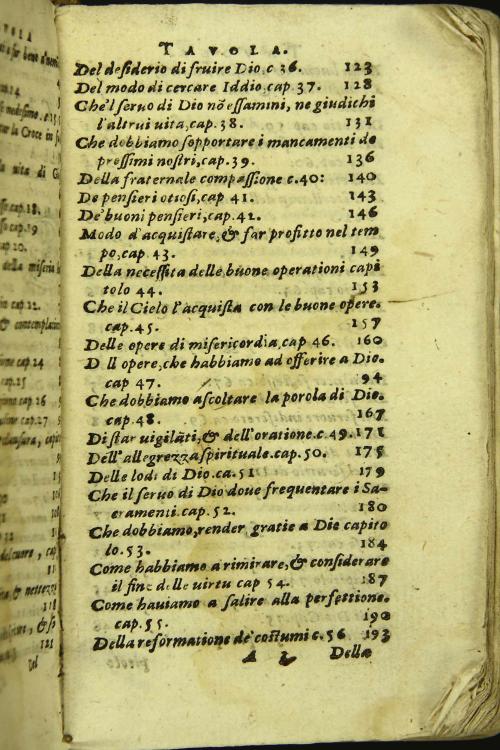 TAVOLA.
Del desiderio di fruire Dio,c 36. 123
Del modo di cercare Iddio,cap.37. 128
Che'l seruo di Dio nõ essamini, ne giudichi
l'altrui uita,cap.38. 131
Che dobbiamo sopportare i mancamenti de
prossimi nostri,cap.39. 136
Della fraternale compassione c.40: 140
De pensieri otiosi,cap 41. 143
De'buoni pensieri,cap.42. 146
Modo d'acquistare,& far profitto nel tem
po,cap 43. 149
Della necessita delle buone operationi capi
tolo 44. 153
Che il Cielo l'acquista con le buone opere.
cap.45. 157
Delle opere di misericordia,cap 46. 160
D ll opere,che habbiamo ad offerire a Dio.
cap 47. 94
Che dobbiamo ascoltare la porola di Dio.
cap.48. 167
Di star uigilãti,& dell'oratione.c.49. 171
Dell'allegrezza spirituale.cap.50. 175
Delle lodi di Dio.ca.51 179
Che il seruo di Dio doue frequentare i Sa-
eramenti.cap.52. 180
Che dobbiamo,render gratie a Dio capito
lo.53. 184
Come habbiamo a rimirare,& considerare
il fine delle uirtu cap 54. 187
Come hauiamo a salire alla perfettione.
cap.55. 190
Della reformatione de costumi c.56 193
Della